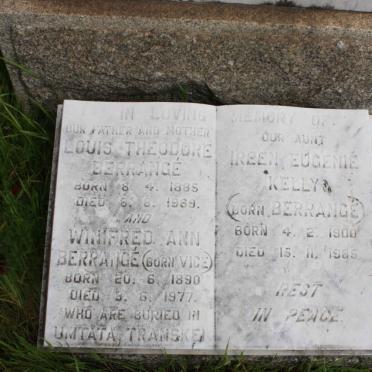 IN LOVING
OUR FATHER AND MOTHER
LOUIS THEODORE
BERRANGÉ
BORN 8. 4. 1885
DIED 6. 8. 1969.
AND
WINIFRED ANN
BERRANGÉ (BORN VICE)
BORN 20. 6. 1890
DIED 9. 6. 1977.
WHO ARE BURIED IN
UMTATA, TRANSKEI
MEMORY OF:
OUR AUNT
IREEN EUGENIE
KELLY
(BORN BERRANGÉ)
BORN 4. 2. 1900
DIED 15. 11. 1985
REST
IN PEACE.